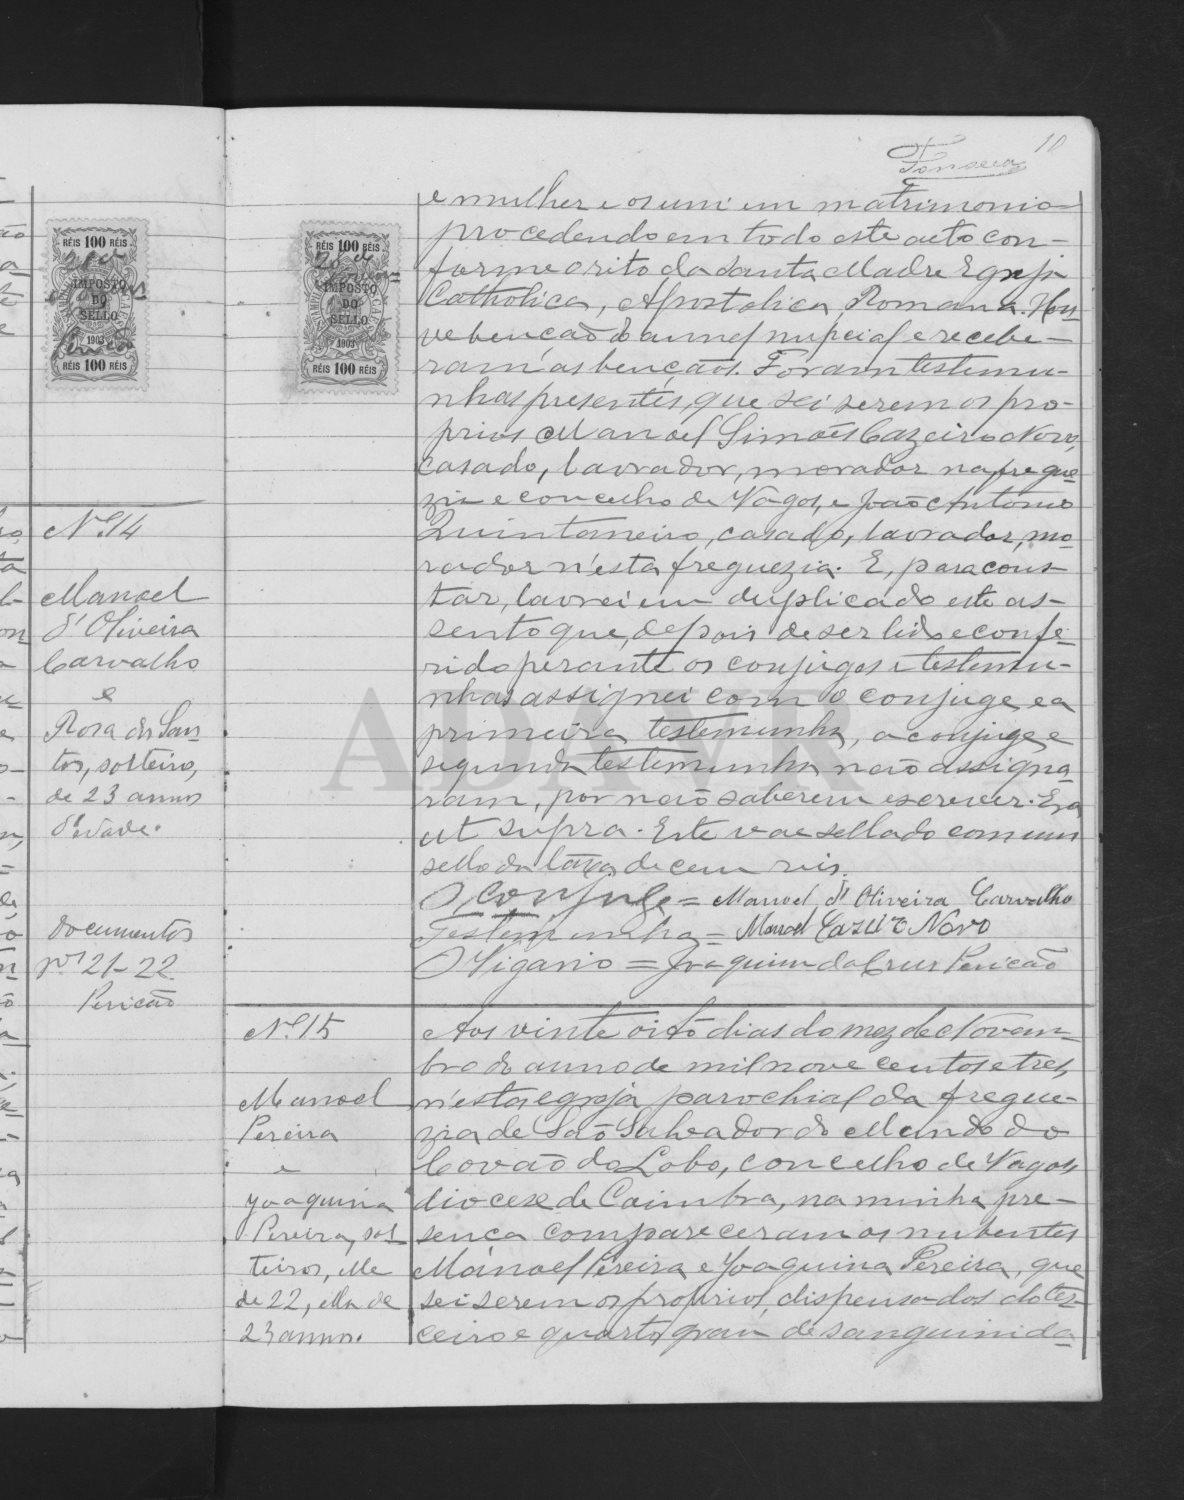 10
Fonseca
e mulher e os uni em matrimonio
procedendo em todo este acto con-
forme o rito da Santa Madre Egreja
Catholica, Apostolica, Romana. Hou-
ve benção do annel nupcial e recebe-
ram as bençãos. Foram testemu-
nhas presentes, que sei serem os pro-
prios Manoel Simões Cazeiro Novo,
casado, lavrador, morador na fregue-
zia e concelho de Vagos, e João Antonio
Quintaneiro, casado, lavrador, mo-
rador n'esta freguezia. E, para cons-
tar, lavrei em duplicado este as-
sento que, depois de ser lido e confe-
rido perante os conjuges e testemu-
nhas assignei com o conjuge e a
primeira testemunha, a conjuge e
segunda testemunha não assigna-
ram, por não saberem escrever. Era
ut supra. Este vae sellado com um
sello da taxa de cem reis.
O conjuge = Manoel d'Oliveira Carvalho
Testemunha = Manoel Cazeiro Novo
O Vigario = Joaquim da Cruz Pericão
RÉIS 100 RÉIS
IMPOSTO
DO
SELLO
1903
RÉIS 100 RÉIS
RÉIS 100 RÉIS
IMPOSTO
DO
SELLO
1903
RÉIS 100 RÉIS
Nº 14
Manoel
d'Oliveira
Carvalho
e
Rosa dos San-
tos, solteiros,
de 23 annos
d'edade.
Documentos
nos 21-22
Pericão
Nº 15
Manoel
Pereira
e
Joaquina
Pereira, sol-
teiros, elle
de 22, ella de
23 annos.
Aos vinte oito dias do mez de Novem-
bro do anno de mil nove centos e tres,
n'esta egreja parochial da fregue-
zia de São Salvador do Mundo do
Covão do Lobo, concelho de Vagos,
diocese de Coimbra, na minha pre-
sença compareceram os nubentes
Manoel Pereira e Joaquina Pereira, que
sei serem os proprios, dispensados do ter-
ceiro e quarto grau de sanguinida-
ADAVR